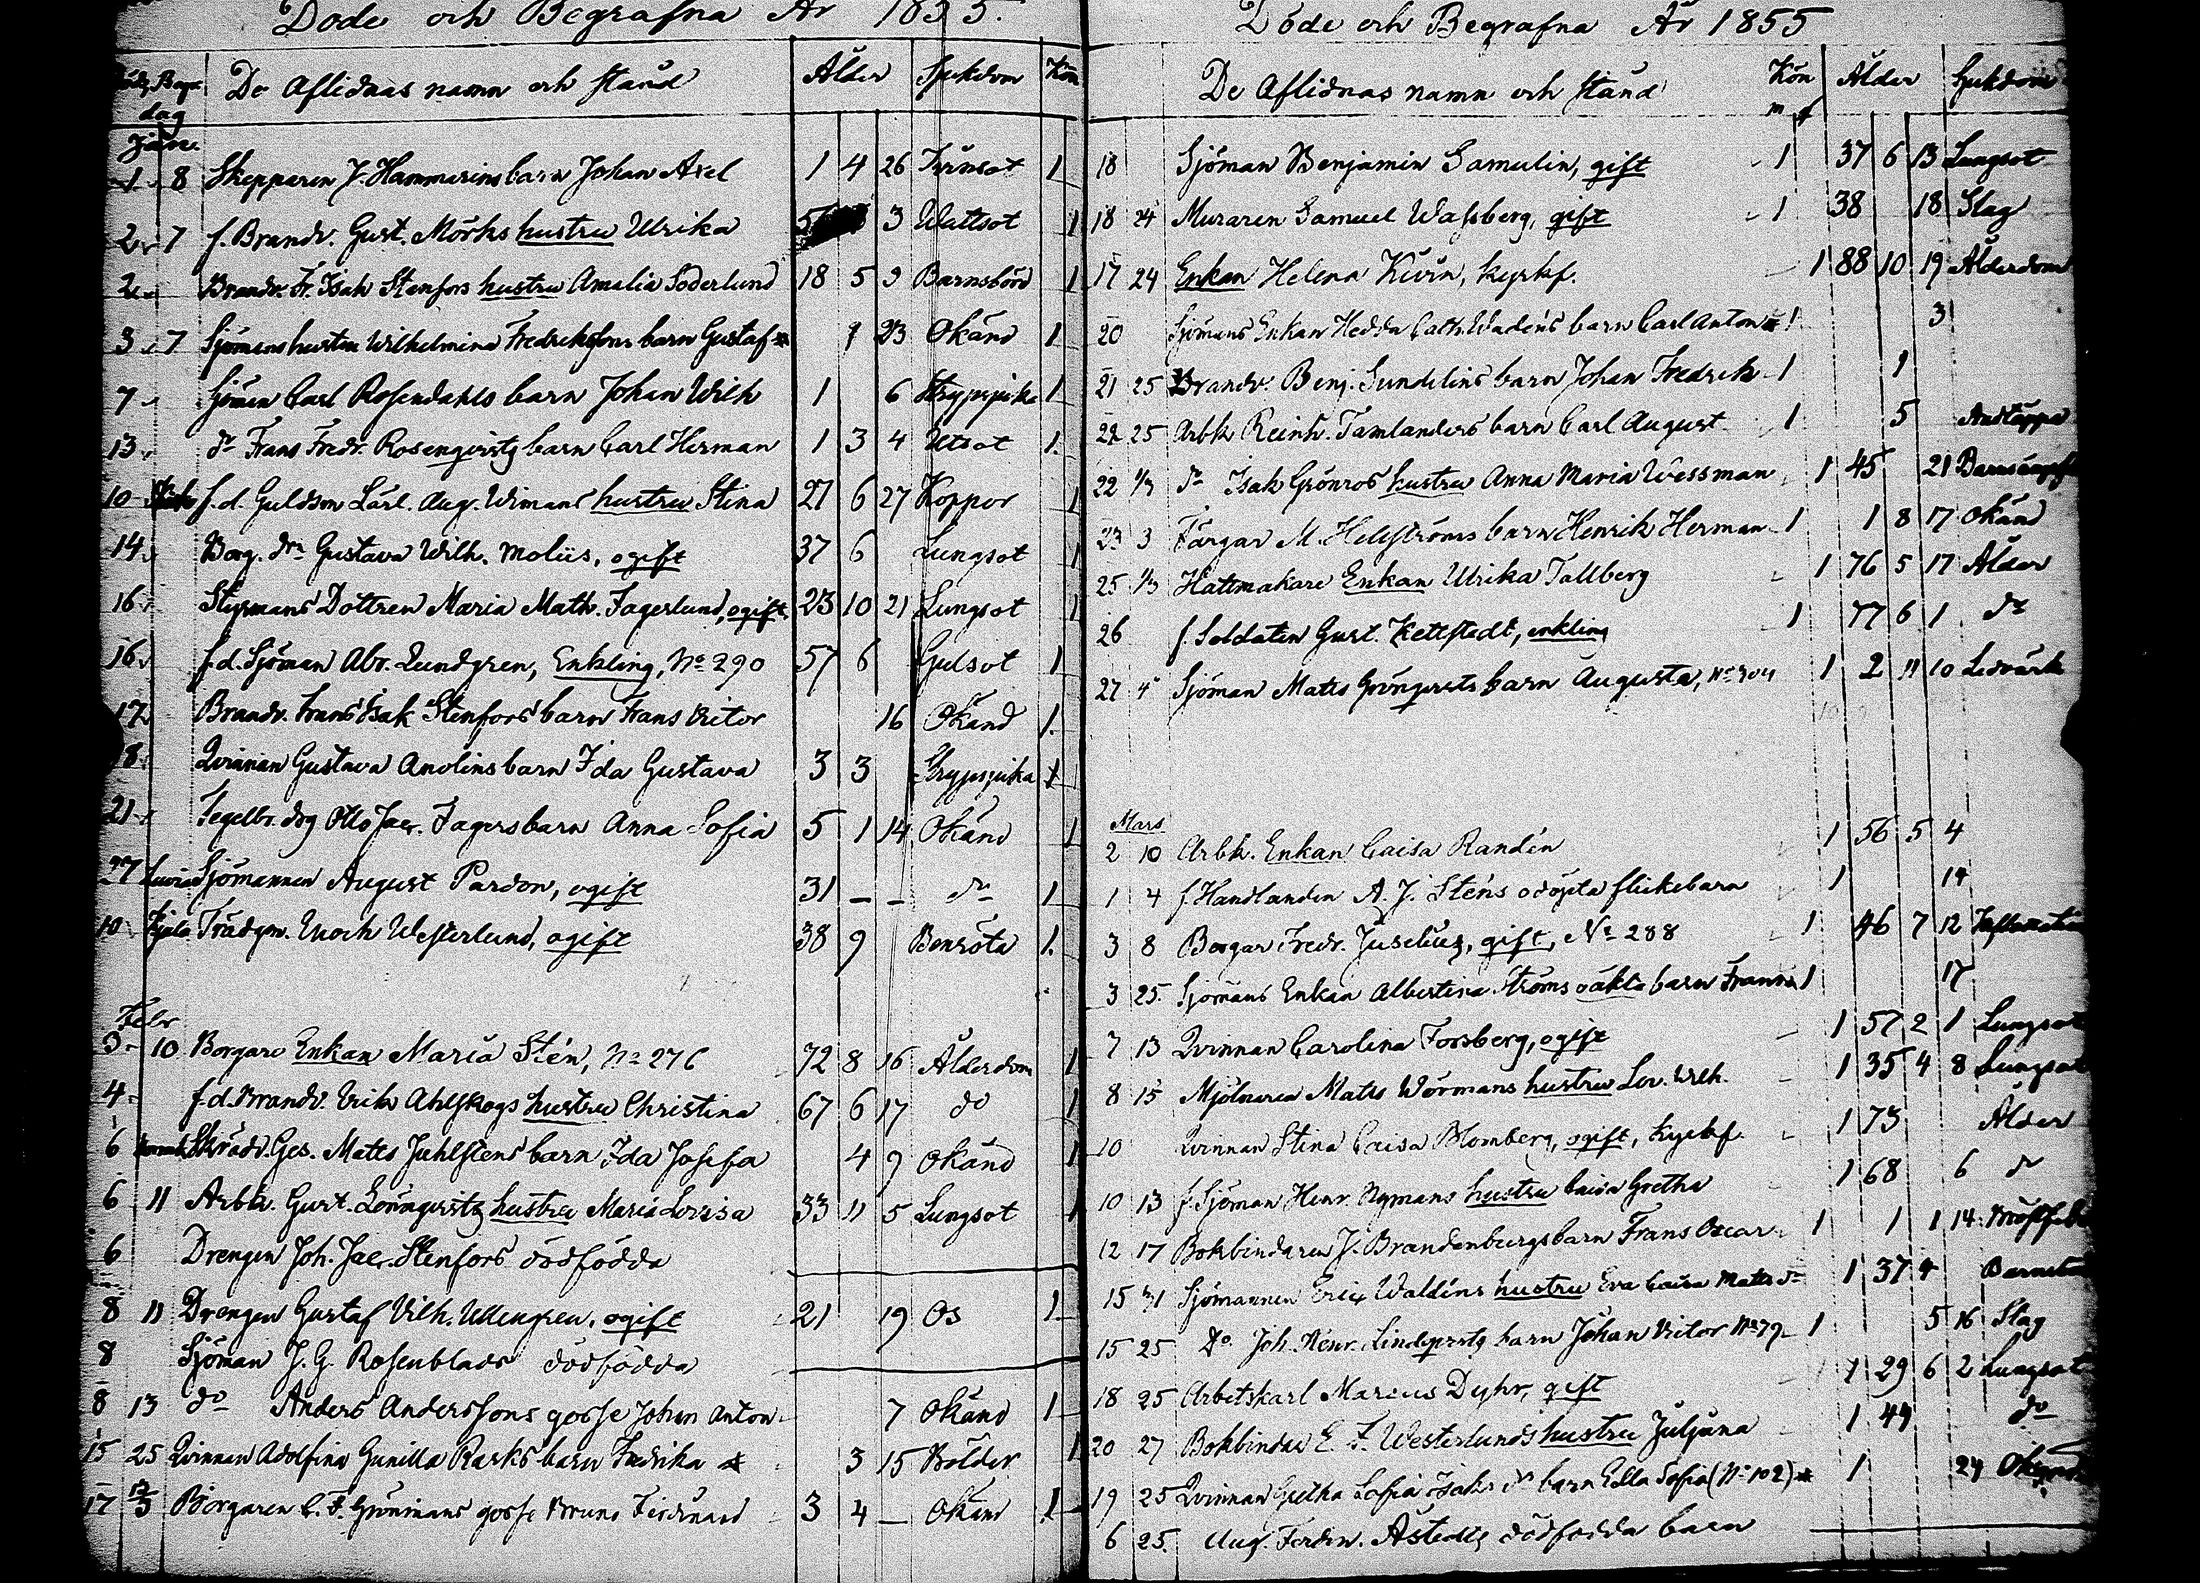 Döde och Begrafna År 1855.
Död. Begr. dag De Aflidnas namn och stand Ålder Sjukdom Kön
Janr.
1 8 Skepparen J. Hammarins barn Johan Axel 1 4 26 Tvinsot 1
2 7 f. Brandv. Gust. Mörks hustru Ulrika 3 Wattsot 1
2 Brandv. Fr. Isak Stenfors hustru Amalia Söderlund 18 5 9 Barnsbörd 1
3 7 Sjömans hustru Wilhelmina Fredrikssons barn Gustaf 1 23 Okänd 1
7 Sjömän Carl Rosendahls barn Johan Wilh 1 6 Strypsjuka 1
13 do Frans Fredr. Rosenqvists barn Carl Herman 1 3 4 Utsot 1.
10 f.d. Guldsm Lärl. Aug. Wimans hustru Stina 27 6 27 Koppor 1
14 Borg. dr Gustava Wilh. Moliis, ogift 37 6 Lungsot 1
16 Styrmans Dottren Maria Math. Fagerlund, ogift 23 10 21 Lungsot 1
16 f.d. Sjöman Abr. Lundgren, Enkling, No 290 57 6 Gulsot 1
17 Brandv. Frans Isak Stenfors barn Frans Victor 16 Okänd 1.
18 Qvinnan Gustava Anolins barn Ida Gustava 3 3 Strypsjuka 1
21 Segelbr. drg Otto Jac. Fagers barn Anna Sofia 5 1 14 Okänd 1
27 Luvia Sjömannen August Pardon, ogift 31 – – do 1
10 Trädgm. Enoch Westerlund, ogift 38 9 Benröta 1.
Febr
3 10 Borgare Enkan Maria Stén, No 276 72 8 16 Ålderdom 1
4 f.d. Brandv. Erik Ahlskogs hustru Christina 67 6 17 do 1
6 Skräd. Ges. Matts Juhlstens barn Ida Josefa 4 9 Okänd 1
6 11 Arbk. Gust. Lönnqvists hustru Maria Lovisa 33 11 5 Lungsot 1
6 Drengen Joh. Jac. Stenfors dödfödda
8 11 Drengen Gustaf Vilh. Ullengren, ogift 21 19 Os 1
8 Sjöman J. G. Rosenblads dödfödda
8 13 do Anders Anderssons gosse Johan Anton 7 Okänd 1
15 25 Qvinnan Adolfina Gunilla Rasks barn Fredrika 3 15 Bölder 1
17 Borgaren C. F. Grönmans gosse Bruno Ferdinand 3 4 – Okänd 1
Döde och Begrafna År 1855
De Aflidnas namn och stand Kön m f Ålder Sjukdom
18 Sjöman Benjamin Samulin, gift 1 37 6 13 Lungsot
18 24 Muraren Samuel Wassberg, gift 1 38 18 Slag
17 24 Enkan Helena Kivin, kyrkf. 1 88 10 19 Ålderdom
20 Sjömans Enkan Hedda Cath. Wadéns barn Carl Anton 1 3
21 25 Brandv. Benj. Sundelins barn Johan Fredrik 1 1
22 25 Arbk Reinh. Tamlanders barn Carl August 1 5 Andtäppa
22 1/3 do Isak Grönros hustru Anna Maria Wessman 1 45 21
23 3 Färgar M. Hellströms barn Henrik Herman 1 1 8 17 Okänd
25 1/3 Hattmakare Enkan Ulrika Tallberg 1 76 5 17 Ålder
26 f. Soldaten Gust. Zettstedt, enkling 1 77 6 1 do
27 4 Sjöman Matts Grönqvists barn Augusta, No 304 1 2 11 10 Ledvärk
Mars
2 10 Arbk. Enkan Caisa Randén 1 56 5 4
1 4 f. Handlanden A. J. Sténs odöpta flickebarn 1 14
3 8 Borgar Fredr. Juselius, gift, No 288 1 46 7 12
3 25. Sjömans Enkan Albertina Ströms oäkta barn Frans 1 17
7 13 Qvinnan Carolina Forsberg, ogift 1 57 2 1 Lungsot
8 15 Mjölnaren Matts Wörmans hustru Lov. Wilh. 1 35 4 8 Lungsot
10 Qvinnan Stina Caisa Blomberg, ogift, kyrkf. 1 73 Ålder
10 13 f. Sjöman Henr. Nymans hustru Caisa Gretha 1 68 6 do
12 17 Bokbindaren J. Brandenburgs barn Frans Oscar 1 1 1 14
15 31 Sjömannen Eric Waldéns hustru Eva Caisa Matts dr 1 37 4
15 25 Do Joh. Henr. Lindqvists barn Johan Victor No 79 1 5 16 Slag
18 25 Arbetskarl Marcus Dyhr, gift 1 29 6 2 Lungsot
20 27 Bokbindar E. F. Westerlunds hustru Juljana 1 49 do
19 25 Qvinnan Gretha Sofia Isaks dr barn Edla Sofia (No 102) 1 24
6 25. Aug. Ferdin. Åstedts dödfödda barn